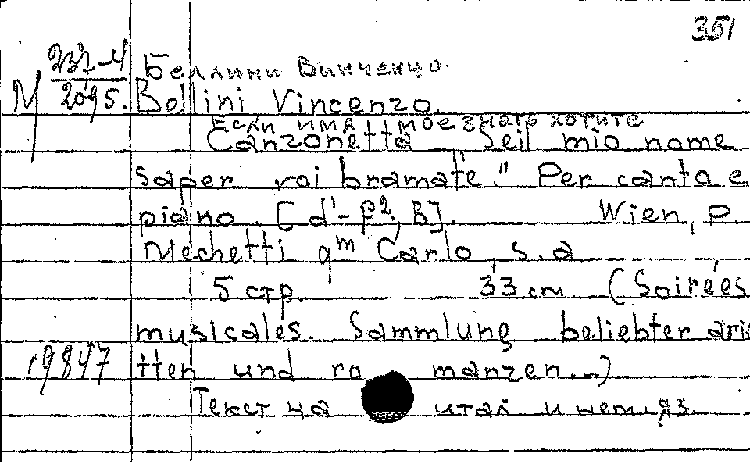 351
М 237-4
2095.
Беллини Винченцо.
Bellini Vincenzo.
Если имя мое знать хотите
Canzonetta "Se il mio nome
saper voi bramate." Per canto e
piano. [d¹-f², B]. Wien, P.
Mechetti qm Carlo, s.a
5 стр. 33 cm (Soirées
musicales. Sammlung beliebter arie
19847 tten und romanzen...)
Текст на итал и нем яз.